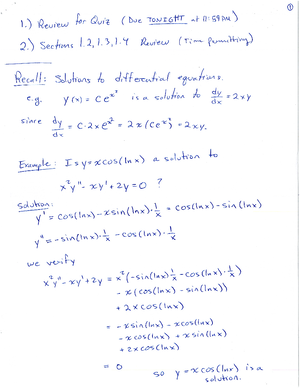 ①
1.) Review for Quiz (Due TONIGHT at 11:59PM)
2.) Sections 1.2, 1.3, 1.4 Review (Time permitting)
Recall: Solutions to differential equations.
e.g. y(x) = Ce^(x²) is a solution to dy/dx = 2xy
since dy/dx = C·2xe^(x²) = 2x(Ce^(x²)) = 2xy.
Example: Is y=xcos(lnx) a solution to
x²y" - xy' + 2y = 0 ?
Solution:
y' = cos(lnx) - xsin(lnx)·1/x = cos(lnx) - sin(lnx)
y" = -sin(lnx)·1/x - cos(lnx)·1/x
we verify
x²y" - xy' + 2y = x²(-sin(lnx)1/x - cos(lnx)·1/x)
- x(cos(lnx) - sin(lnx))
+ 2xcos(lnx)
= -xsin(lnx) - xcos(lnx)
- xcos(lnx) + xsin(lnx)
+ 2xcos(lnx)
= 0
so y = xcos(lnx) is a
solution.